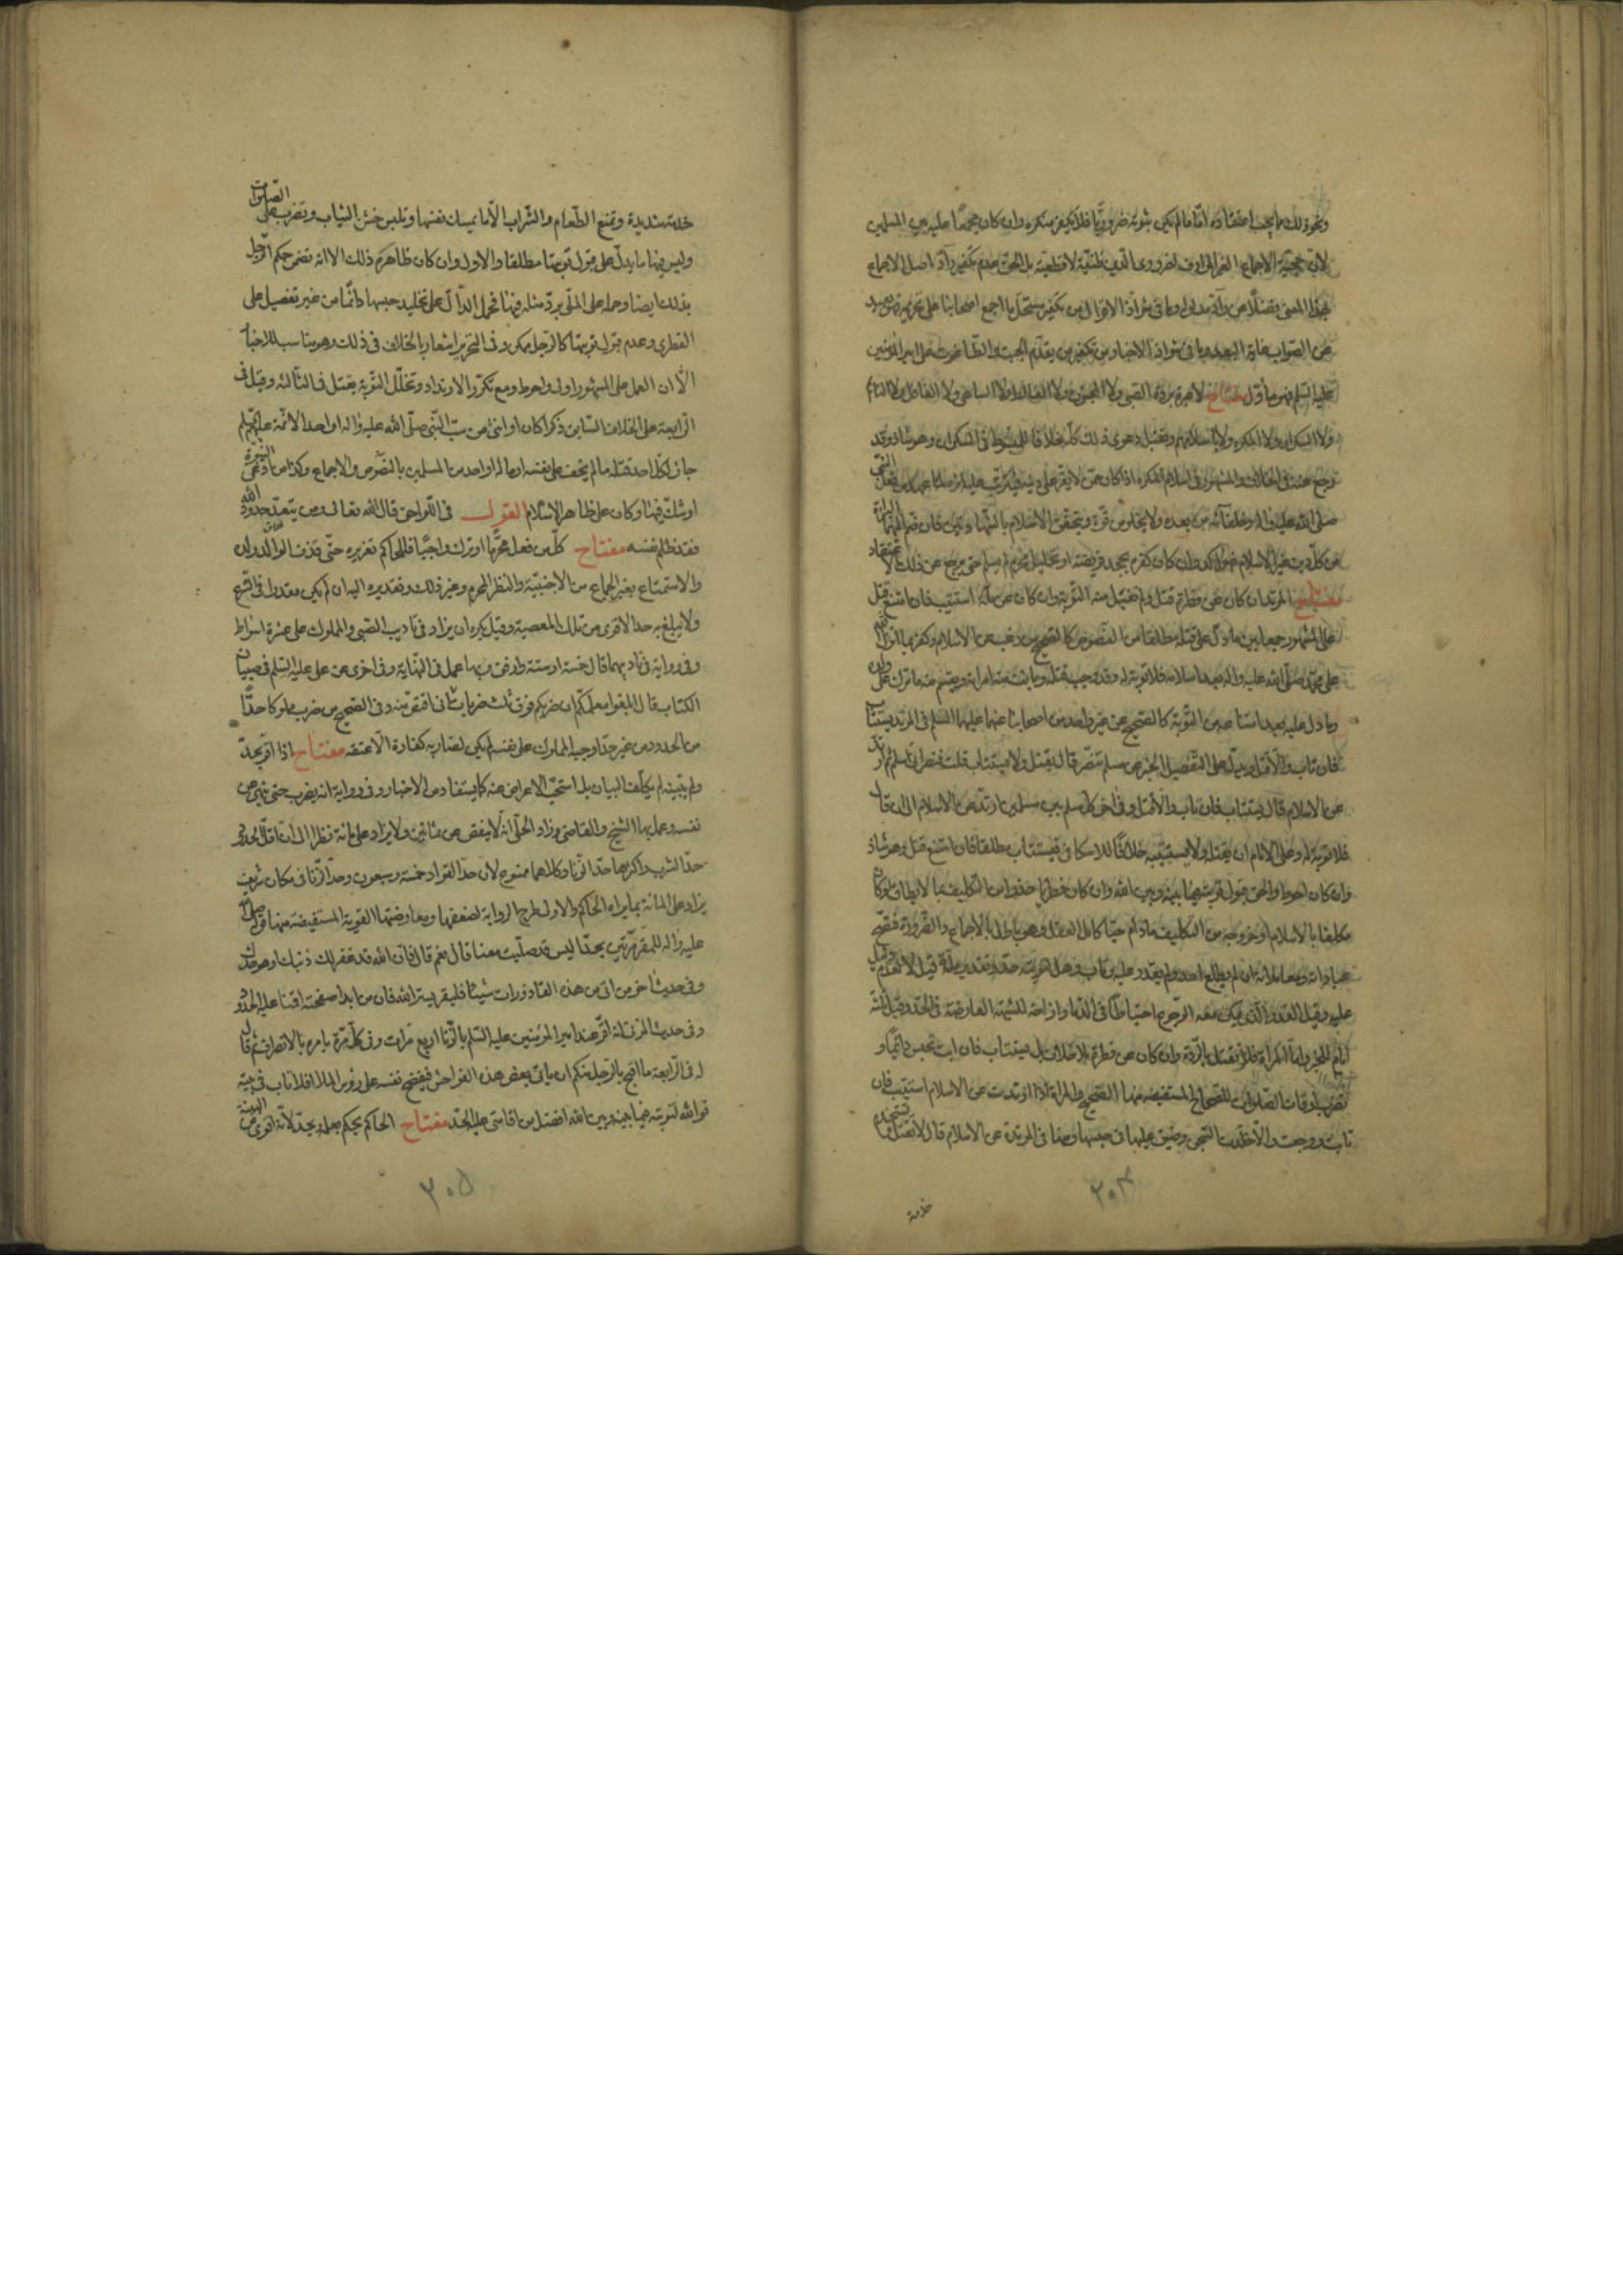 ونحو ذلك مما يجب اعتقاده امّا ما لم يكن ثبوته ضروريًّا فلا يكفر منكره وان كان مجمعًا عليه بين المسلمين
لان حجية الاجماع الغير ظنية لا قطعية بل الحق عدم تكفير رادّ اصل الاجماع
فضلًا عن رادّ مدلوله وما في شواذ الاقوال من تكفير مستحل ما اجمع اصحابنا على تحريمه فهو بعيد
عن الصواب غاية البعد وما في شواذ الاخبار من تكفير من يقدّم الجبت والطاغوت على امير المؤمنين
عليه السلم فهو مأوّل مفتاح لا عبرة بردة الصبي ولا المجنون ولا الغالط ولا الساهي ولا الغافل ولا النائم
ولا السكران ولا المكره ولا باسلامهم وتقبل دعوى ذلك كله خلافا للمبسوط في السكران وهو شاذ وقد
رجع عنه في الخلاف والمشهور في اسلام المكره اذا كان ممن لا يقر على دينه
صلى الله عليه واله وخلفائه من بعده ولا يخلو من قوة ويتحقق الاسلام بالشهادتين فان ضم اليهما البرائة
من كل دين غير الاسلام فهو اكد وان كان كفره بجحد فريضة او تحليل محرم لم يسلم حتى يرجع عن ذلك الاعتقاد
مفتاح المرتد ان كان عن فطرة قتل ولم تقبل منه التوبة وان كان عن ملة استتيب فان امتنع قتل
على المشهور جمعا بين ما دل على قتله مطلقا من النصوص كالصحيح من رغب عن الاسلام وكفر بما انزل الله
على محمد صلى الله عليه واله بعد اسلامه فلا توبة له وقد وجب قتله وبانت منه امراته ويقسم ما ترك على ولده
وما دل عليه بعد استتابته كالصحيح عن غير واحد من اصحابنا عنهما عليهما السلم في المرتد يستتاب
فان تاب والا قتل ويدل على التفصيل الخبر عن مسلم تنصّر قال يقتل ولا يستتاب قلت فنصراني اسلم ثم ارتد
عن الاسلام قال يستتاب فان تاب والا قتل وفي اخر كل مسلم بين مسلمين ارتد عن الاسلام الى ان قال
فلا توبة له وعلى الامام ان يقتله ولا يستتيبه خلافًا للاسكافي فيستتاب مطلقا فان امتنع قتل وهو شاذ
وان كان احوط والحق قبول توبته فيما بينه وبين الله وان كان فطريا حذرا من التكليف بما لا يطاق لو كان
مكلفا بالاسلام او خروجه من التكليف ما دام حيّا كامل العقل وهو باطل بالاجماع والضرورة فتصح
عباداته ومعاملاته ان لم يطلع احد ولم يقدر عليه وتاب
عليه وقيل القدر الذي يمكن معه الرجوع احتياطا في الدماء وازاحة للشبهة العارضة في الحد وقيل ثلثة
ايام للخبر واما المراة فلا تقتل بالردة وان كان عن فطرة بلا خلاف بل تستتاب فان ابت تحبس دائمًا و
تضرب اوقات الصلوات للصحاح المستفيضة منها الصحيح والمراة اذا ارتدت عن الاسلام استتيبت فان
تابت ورجعت والا خلدت السجن وضيق عليها في حبسها ومنها في المرتدة عن الاسلام قال لا تقتل وتستخدم
خدمة
٣٠٤
خدمة شديدة وتمنع الطعام والشراب الّا ما يمسك نفسها وتلبس خشن الثياب وتضرب على الصلوات
وليس فيها ما يدل على قبول توبتها مطلقا والاول وان كان ظاهره ذلك الا انه تضمن حكم الرجل
بذلك ايضا وحمله على الملي يرد مثله فيها فحمل الدال على تخليد حبسها دائما من غير تفصيل على
الفطري وعدم قبول توبتها كالرجل ممكن وفي التحرير اشعار بالخلاف في ذلك وهو مناسب للاخبار
الّا ان العمل على المشهور اولى واحوط ومع تكرر الارتداد وتخلّل التوبة يقتل في الثالثة وقيل في
الرابعة على الخلاف السابق ذكرا كان او انثى من سب النبي صلى الله عليه واله او احد الائمة عليهم السلم
جاز لكل احد قتله ما لم يخف على نفسه او ماله او احد من المسلمين بالنصوص والاجماع وكذا من ادعى النبوة
او شك فيها وكان على ظاهر الاسلام القول في اللواحق قال الله تعالى ومن يتعد حدود الله
فقد ظلم نفسه مفتاح كل من فعل محرّما او ترك واجبًا فللحاكم تعزيره حتى قذف الوالد ولده
والاستمتاع بغير الجماع من الاجنبية والنظر المحرم وغير ذلك وتقديره اليه ان لم يكن مقدرا في الشرع
ولا يبلغ به حد الاقوى من تلك المعصية وقيل يكره ان يزاد في تاديب الصبي والمملوك على عشرة اسواط
وفي رواية في تاديبهما قال خمسة او ستة وارفق وبها عمل في النهاية وفي اخرى عن علي عليه السلم في صبيان
الكتاب قال ابلغوا معلمكم ان ضربكم فوق ثلث ضربات اني اقتص منه وفي الصحيح من ضرب مملوكا حدًّا
من الحدود من غير حدّ اوجبه المملوك على نفسه لم يكن لضاربه كفارة الّا عتقه مفتاح اذا اقر بحدّ
ولم يبينه لم يكلف البيان بل استحب الاعراض عنه كما يستفاد من الاخبار وفي رواية انه يضرب حتى ينهى عن
نفسه وعمل بها الشيخ والقاضي وزاد الحلّي انه لا ينقص من ثمانين ولا يزاد على مائة نظرا الى ان اقل الحدود
حد الشرب واكثرها حد الزنا وكلاهما ممنوع لان حد القواد خمسة وسبعون وحد الزنا في مكان شريف
يزاد على المائة بما يراه الحاكم والاولى طرح الرواية لضعفها ومعارضتها القوية المستفيضة منها قوله صلى الله
عليه واله للمقر مرتين بحد اليس قد صليت معنا قال نعم قال فان الله قد غفر لك ذنبك او حدك
وفي حديث اخر من اتى من هذه القاذورات شيئا فليستتر بستر الله فان من ابدا صفحته اقمنا عليه الحدود
وفي حديث اخر انه اقر عند امير المؤمنين عليه السلم بالزنا اربع مرات وفي كل مرة يامره بالانصراف ثم قال
له في الرابعة ما اقبح بالرجل منكم ان ياتي بعض هذه الفواحش فيفضح نفسه على رؤس الملا افلا تاب في بيته
فوالله لتوبته فيما بينه وبين الله افضل من اقامتي عليه الحد مفتاح الحاكم يحكم بعلمه بحد لانه اقوى من البينة
٣٠٥